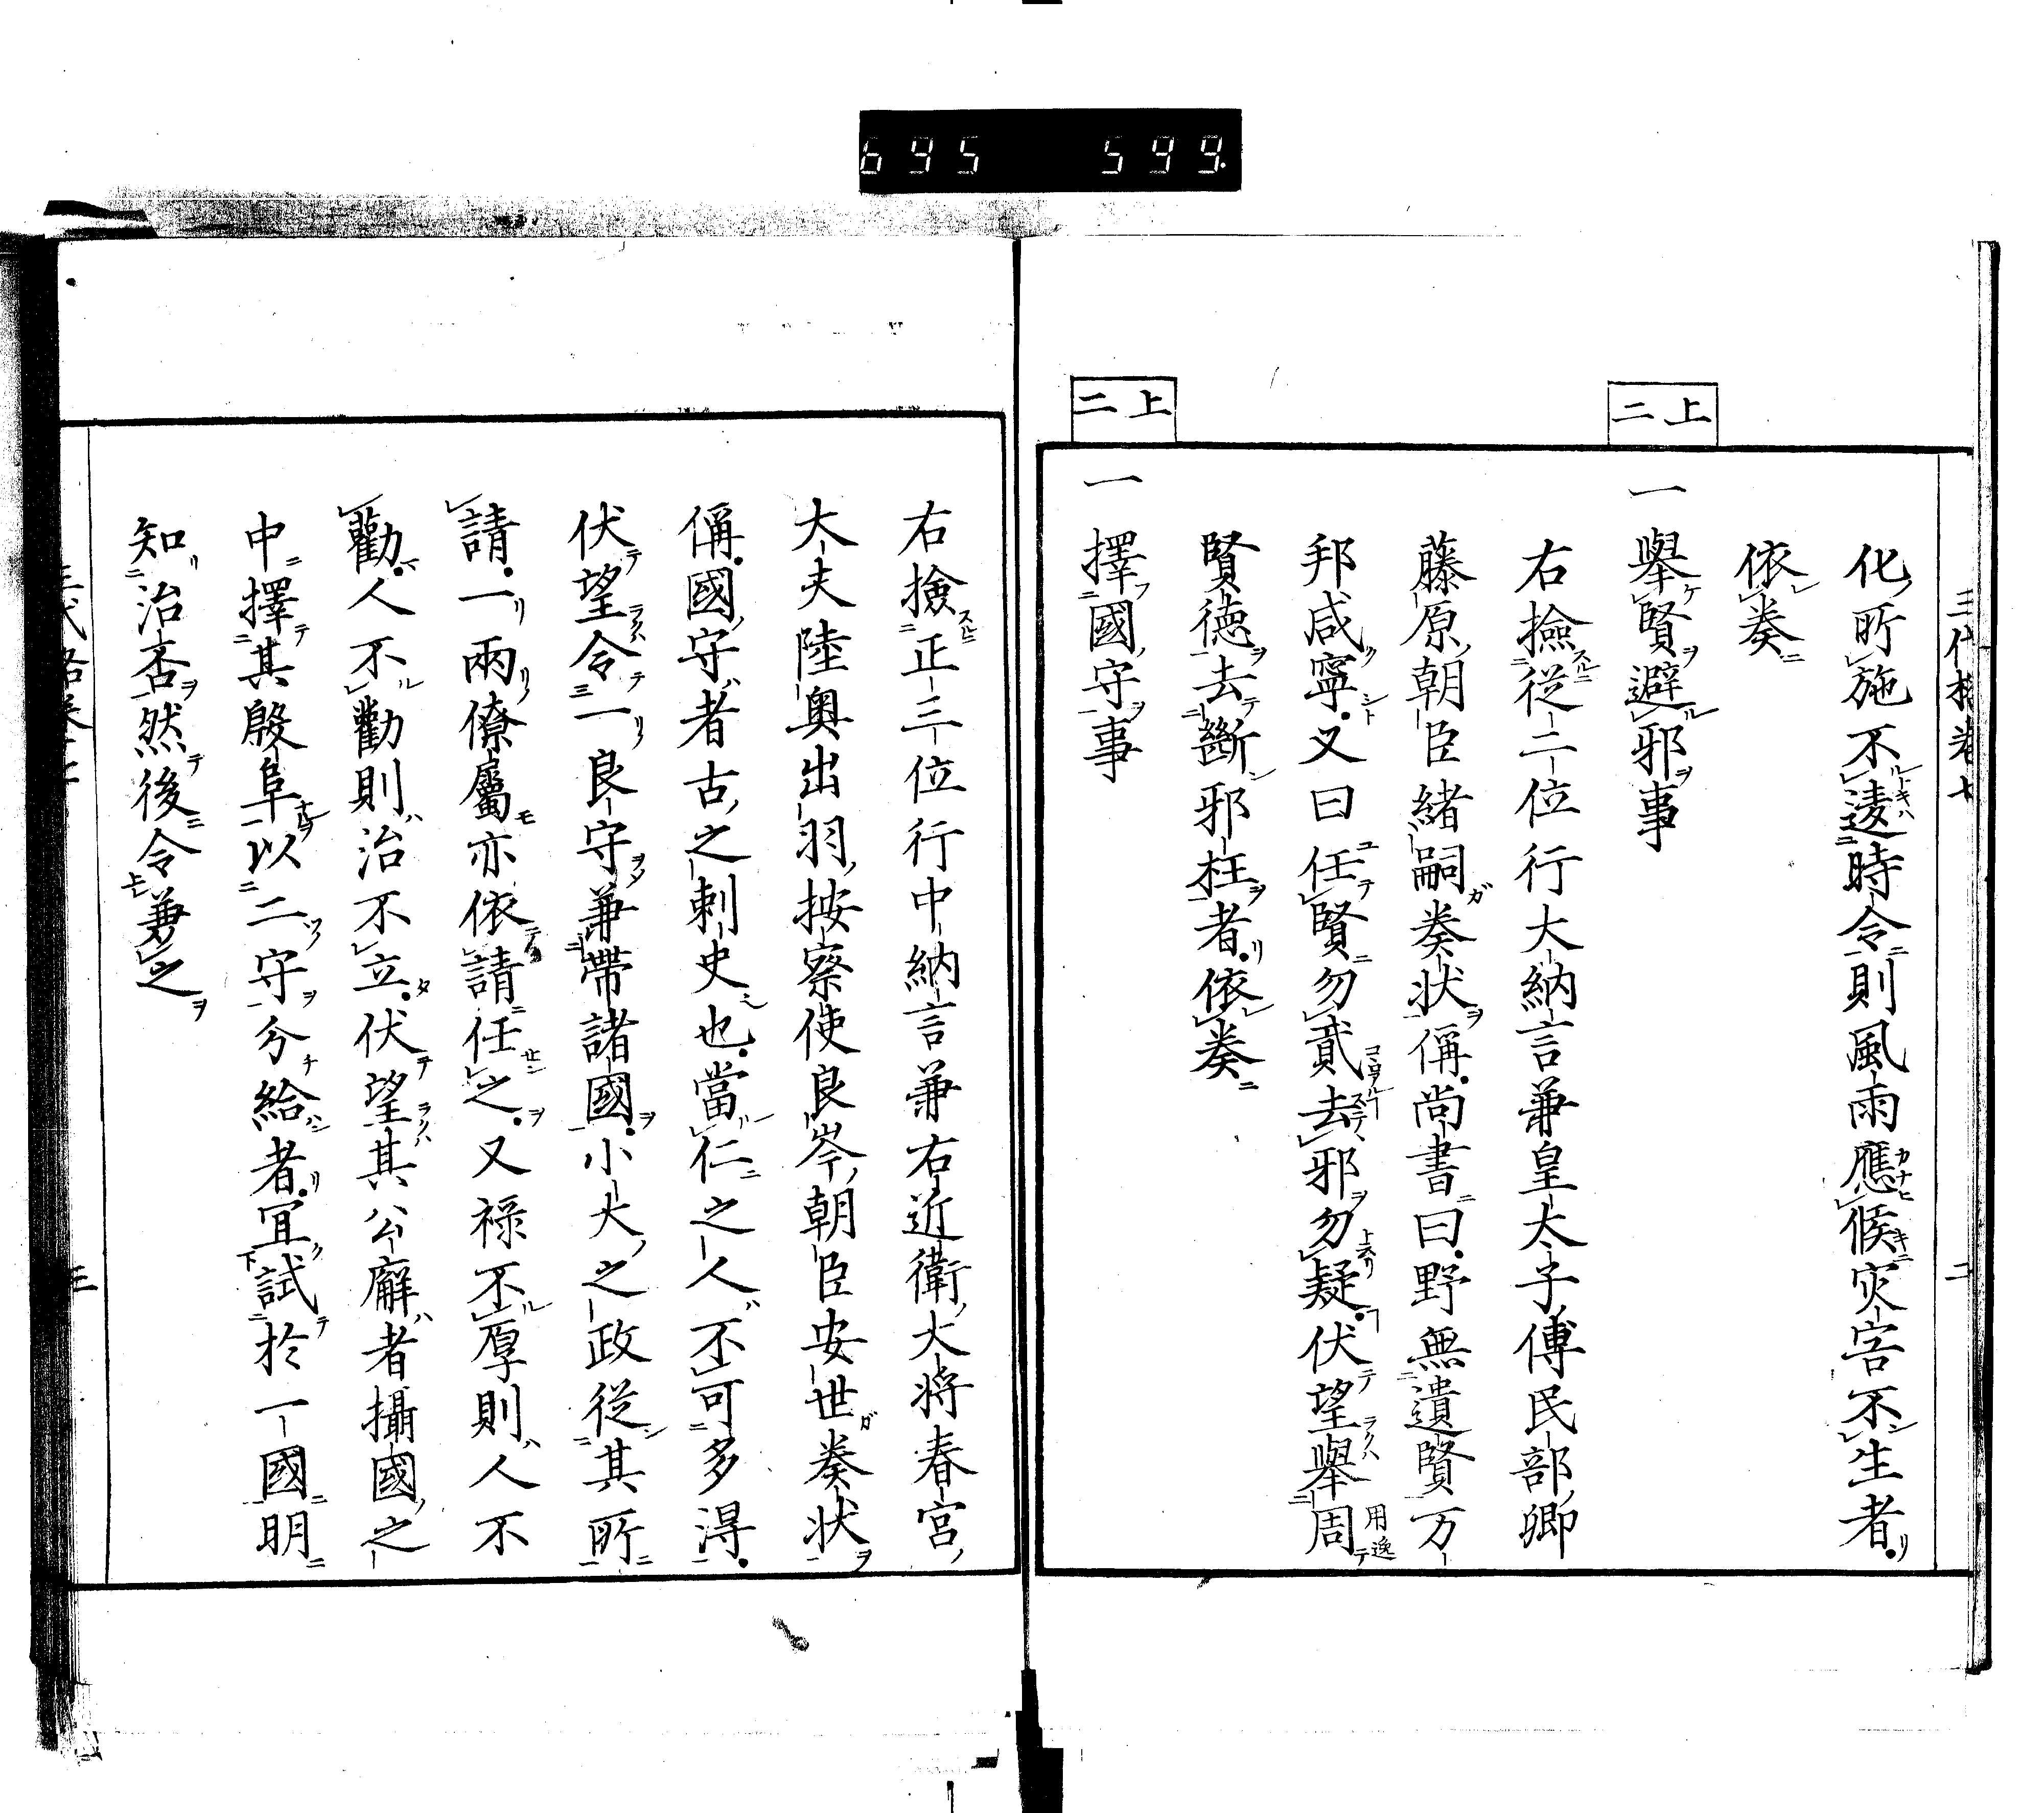 695 599.
三代格卷七 二
化所施不淩迕時令則風雨應候灾害不生者
依奏
上二
一擧賢避邪事
右撿從二位行大納言兼皇太子傅民部卿
藤原朝臣緒嗣奏状偁尚書曰野無遺賢万
邦咸寧又曰任賢勿貳去邪勿疑伏望擧周
用逸
賢德去斷邪枉者依奏
上二
一擇國守事
右撿正三位行中納言兼右近衛大将春宮
大夫陸奥出羽按察使良岑朝臣安世奏状
偁國守者古之刺史也當仁之人不可多淂
伏望令一良守兼帶諸國小大之政從其所
請一兩僚屬亦依請任之又禄不厚則人不
勸人不勸則治不立伏望其公廨者攝國之
中擇其殷阜以二守分給者冝試於一國明
知治否然後令兼之
三代格卷七 三